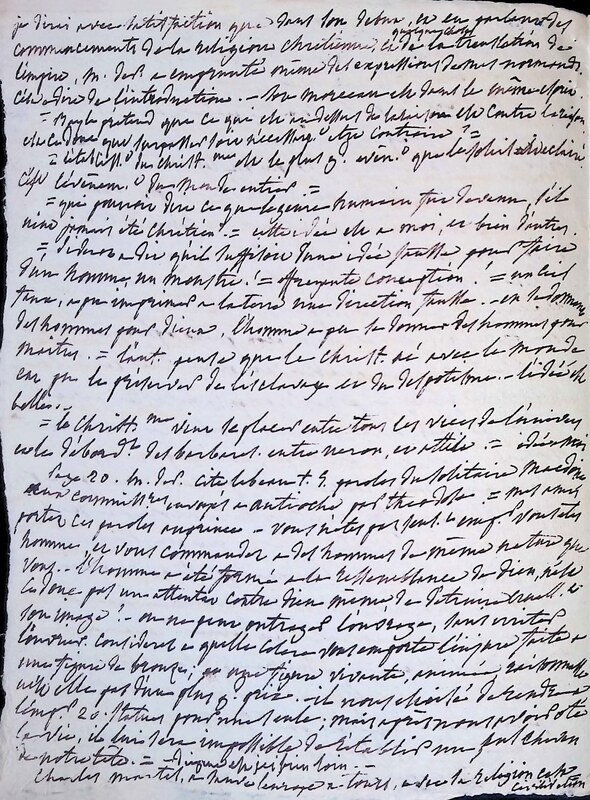 je dirai avec satisfaction que dans son début, et en parlant des
commencements de la religion chrétienne, et de la translation de quelque chose
l'empire, m. des. a emprunté même des expressions de mes normands
c'est à dire de l'introduction. - son morceau est dans le même esprit
= prétend que ce qui est au dessus de la raison est contre la raison
est ce donc que surpasser soit nécessairement être contraire? =
= du christ.me est le plus g. évén.t que le soleil ait éclairé
c'est l'événem.t du monde entier. =
= qui pourroit dire ce que le genre humain fut devenu, s'il
n'eut jamais été chrétien. = cette idée est a moi, et bien d'autres.
= diderot a dit qu'il suffisoit d'une idée fausse pour faire
d'un homme, un monstre! = effrayante conception! = un ciel
faux, a pu imprimer a la terre une direction fausse. - en se donnant
des hommes pour dieux, l'homme a pu se donner des hommes pour
maîtres. = l'aut. pense que le christ. né avec le monde
eut pu le préserver de l'esclavage et du despotisme - l'idée est
belle. -
= le christ.me vient se placer entre tous les vices de l'univers
et les débord.ts des barbares. entre neron, et attila. = idée
page 20. m. des. cite les paroles du solitaire macédone
aux commissres envoyés a antioche par théodose = mes amis
portez ces paroles au prince - vous n'êtes pas seul.t emp.r vous êtes
homme, et vous commandez a des hommes de même nature que
vous. - l'homme a été formé a la ressemblance de dieu, n'est
ce donc pas un attentat contre dieu même de détruire cruell.t
son image? - on ne peut outrager l'ouvrage, sans irriter
l'ouvrier. considerez a quelle colere vous emporte l'injure faite a
une figure de bronze; et une figure vivante, animée, raisonnable
n'est elle pas d'un plus g. prix. - il nous est aisé de rendre a
l'emp.r 20. statues pour une seule, mais après nous avoir ôté
la vie, il lui sera impossible de rétablir un seul cheveu
de notre tête. = -
Charles martel, a sauvé l'europe a tours, avec la religion et la
civilisation